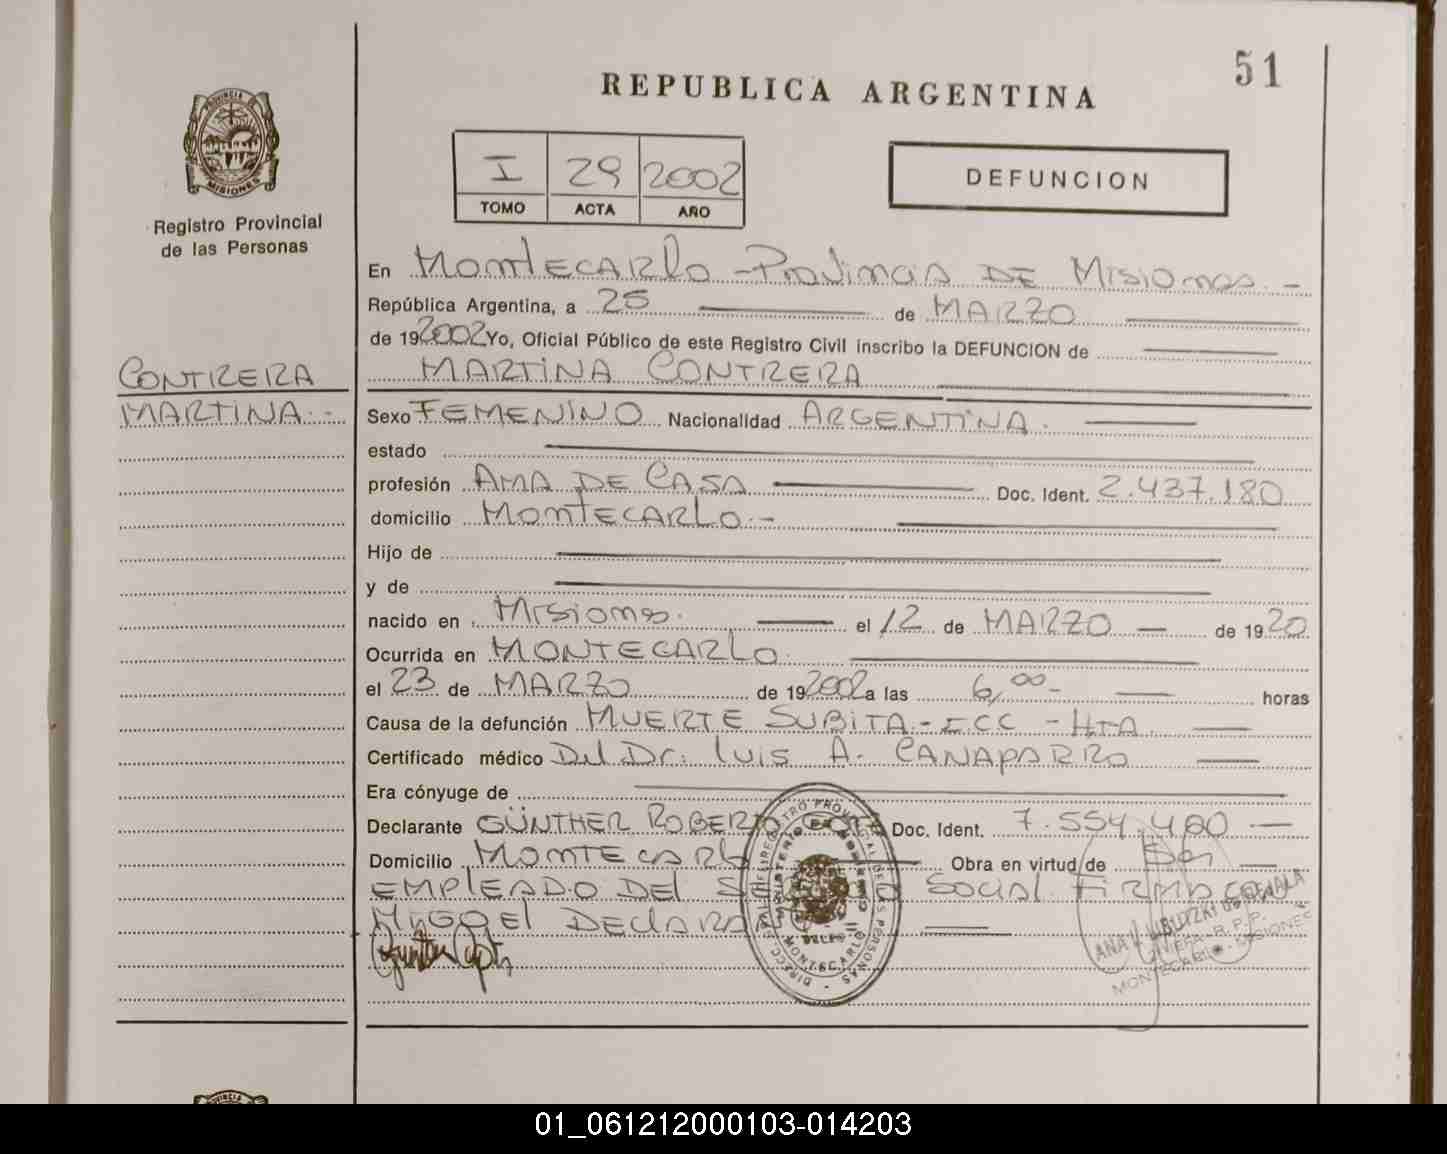 51
REPUBLICA ARGENTINA
PROVINCIA DE
MISIONES
Registro Provincial
de las Personas
I 29 2002
TOMO ACTA AÑO
DEFUNCION
En Montecarlo - Provincia DE Misiones. -
República Argentina, a 25 de MARZO
de 192002 Yo, Oficial Público de este Registro Civil inscribo la DEFUNCION de
CONTRERA
MARTINA CONTRERA
MARTINA. -
Sexo FEMENINO Nacionalidad ARGENTINA.
estado
profesión AMA DE CASA Doc. Ident. 2.437.180
domicilio MONTECARLO. -
Hijo de
y de
nacido en Misiones. el 12 de MARZO - de 1920
Ocurrida en MONTECARLO.
el 23 de MARZO de 192002 a las 6,00- horas
Causa de la defunción MUERTE SUBITA - I.C.C - HTA
Certificado médico Del Dr. Luis A. CANAPARRO
Era cónyuge de
Declarante GÜNTHER ROBERTO Doc. Ident. 7.554.480
Domicilio MONTECARLO Obra en virtud de Ser
EMPLEADO DEL SOCIAL FIRMA CON
MIGO EL DECLARANTE
MONTECARLO
MONTECARLO - MISIONES
01_061212000103-014203